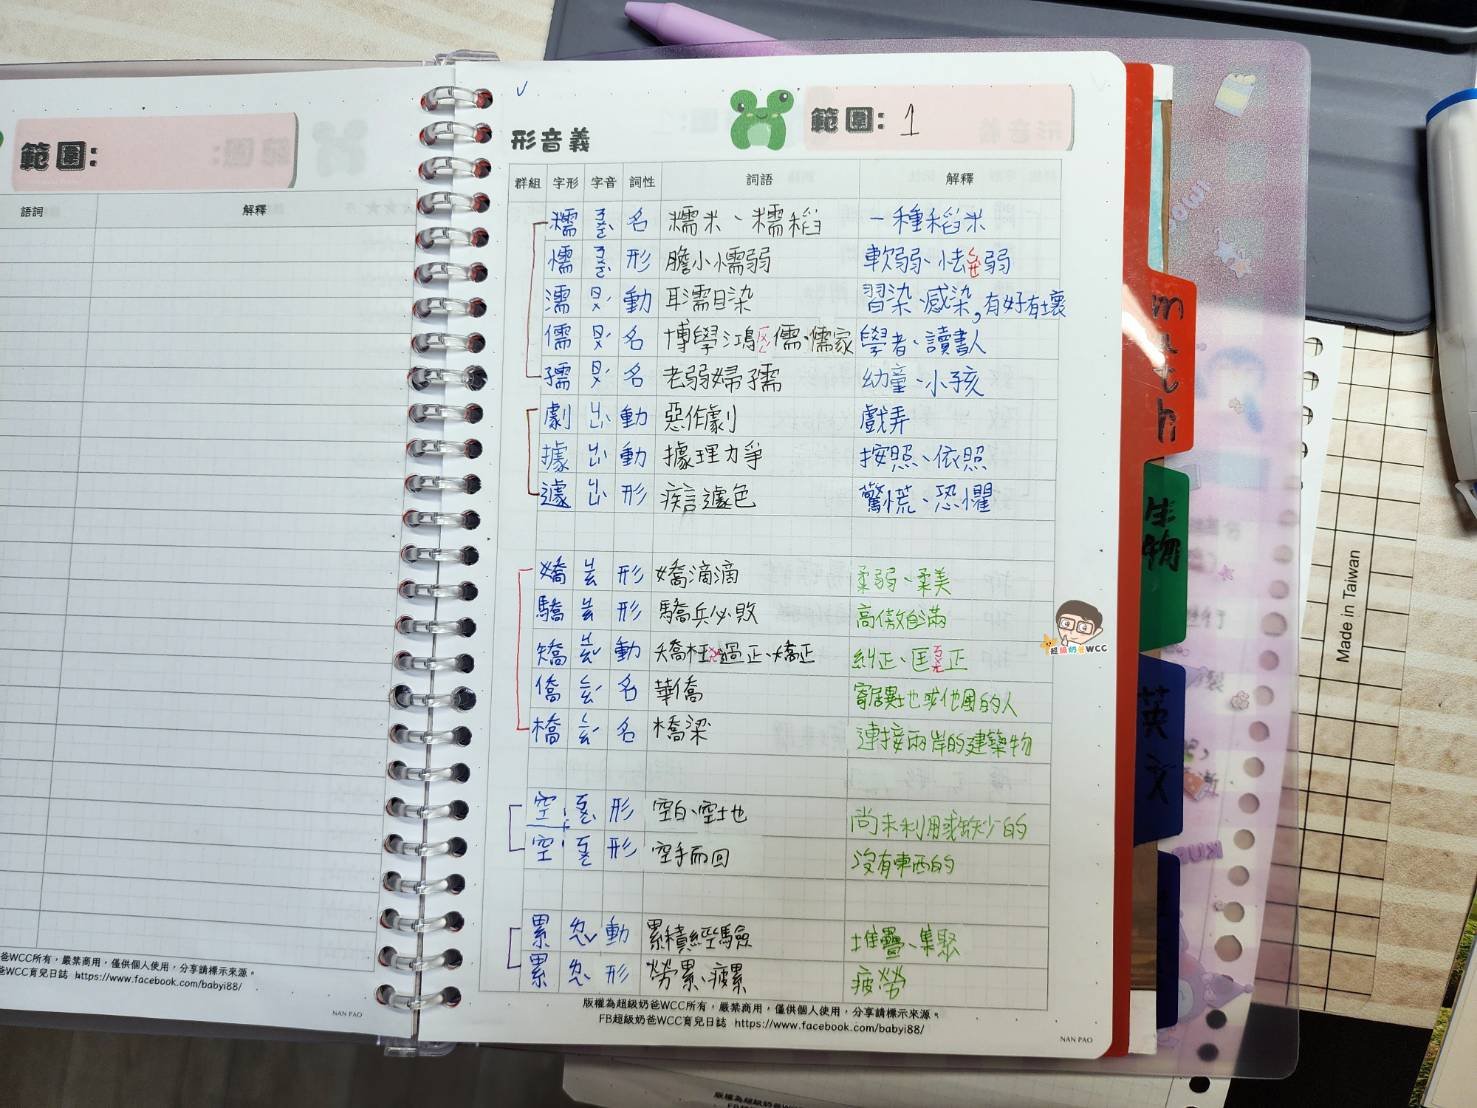 範圍:
語詞 解釋
爸WCC所有,嚴禁商用,僅供個人使用,分享請標示來源。
爸WCC育兒日誌 https://www.facebook.com/babyi88/
NAN PAO
形音義
範圍: 1
群組 字形 字音 詞性 詞語 解釋
糯 ㄋㄨㄛˋ 名 糯米、糯稻 一種稻米
懦 ㄋㄨㄛˋ 形 膽小懦弱 軟弱、怯ㄑㄩㄝˋ弱
濡 ㄖㄨˊ 動 耳濡目染 習染、感染,有好有壞
儒 ㄖㄨˊ 名 博學鴻ㄏㄨㄥˊ儒、儒家 學者、讀書人
孺 ㄖㄨˊ 名 老弱婦孺 幼童、小孩
劇 ㄐㄩˋ 動 惡作劇 戲弄
據 ㄐㄩˋ 動 據理力爭 按照、依照
遽 ㄐㄩˋ 形 疾言遽色 驚慌、恐懼
嬌 ㄐㄧㄠ 形 嬌滴滴 柔弱、柔美
驕 ㄐㄧㄠ 形 驕兵必敗 高傲自滿
矯 ㄐㄧㄠˇ 動 矯枉過正、矯正 糾正、匡ㄎㄨㄤ正
僑 ㄑㄧㄠˊ 名 華僑 寄居異地或他國的人
橋 ㄑㄧㄠˊ 名 橋梁 連接兩岸的建築物
空 ㄎㄨㄥˋ 形 空白、空地 尚未利用或缺少的
空 ㄎㄨㄥ 形 空手而回 沒有東西的
累 ㄌㄟˇ 動 累積經驗 堆疊、集聚
累 ㄌㄟˋ 形 勞累、疲累 疲勞
版權為超級奶爸WCC所有,嚴禁商用,僅供個人使用,分享請標示來源。
FB超級奶爸WCC育兒日誌 https://www.facebook.com/babyi88/
NAN PAO
超級奶爸WCC
math
生物
英文
Made in Taiwan